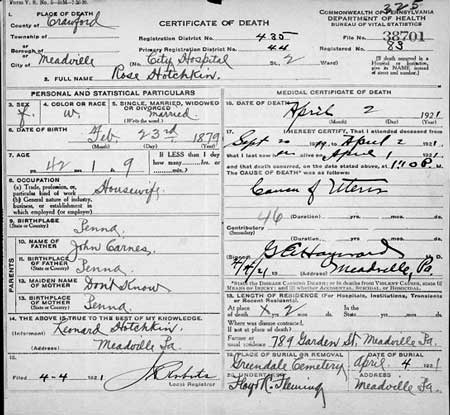 Form V. S. No. 5
1. PLACE OF DEATH
County of Crawford
CERTIFICATE OF DEATH
COMMONWEALTH OF PENNSYLVANIA
DEPARTMENT OF HEALTH
BUREAU OF VITAL STATISTICS
Township of
Registration District No. 435
File No. 38701
or Borough of
Primary Registration District No. 44
Registered No. 83
City of Meadville
City Hospital St., 2
2. FULL NAME Rose Hotchkin
PERSONAL AND STATISTICAL PARTICULARS
MEDICAL CERTIFICATE OF DEATH
3. SEX f.
4. COLOR OR RACE W.
5. SINGLE, MARRIED, WIDOWED or DIVORCED married
16. DATE OF DEATH April 2 1921
(Month) (Day) (Year)
6. DATE OF BIRTH Feb. 23rd 1879
(Month) (Day) (Year)
17. I HEREBY CERTIFY, That I attended deceased
from Sept 20 to April 2 1921
that I last saw alive on April 1 1921
7. AGE 42 yrs. 1 mos. 9 ds.
If LESS than 1 day how many hrs. or min.?
and that death occurred, on the date stated above, at 1:10 P. m.
The CAUSE OF DEATH* was as follows:
8. OCCUPATION
(a) Trade, profession, or particular kind of work Housewife
(b) General nature of industry, business, or establishment in which employed (or employer)
Cancer of Uterus
46
(Duration) yrs. mos. ds.
Contributory (Secondary)
(Duration) yrs. mos. ds.
9. BIRTHPLACE (State or Country) Penna
PARENTS
10. NAME OF FATHER John Carnes
11. BIRTHPLACE OF FATHER (State or Country) Penna
12. MAIDEN NAME OF MOTHER Dont Know
13. BIRTHPLACE OF MOTHER (State or Country) Penna
Meadville Pa.
*State the Disease Causing Death; or in deaths from Violent Causes, state (1) Means of Injury; and (2) whether Accidental, Suicidal, or Homicidal.
18. LENGTH OF RESIDENCE (For Hospitals, Institutions, Transients or Recent Residents)
At place of death
In the State
Where was disease contracted,
If not at place of death?
Former or usual residence 789 Garden St. Meadville Pa.
14. THE ABOVE IS TRUE TO THE BEST OF MY KNOWLEDGE.
(Informant) Leonard Hotchkin
Meadville Pa
15.
Filed 4-4 1921
Local Registrar
19. PLACE OF BURIAL OR REMOVAL
Greendale Cemetery
DATE OF BURIAL
April 4 1921
20. UNDERTAKER
Floyd R. Fleming
ADDRESS
Meadville Pa.